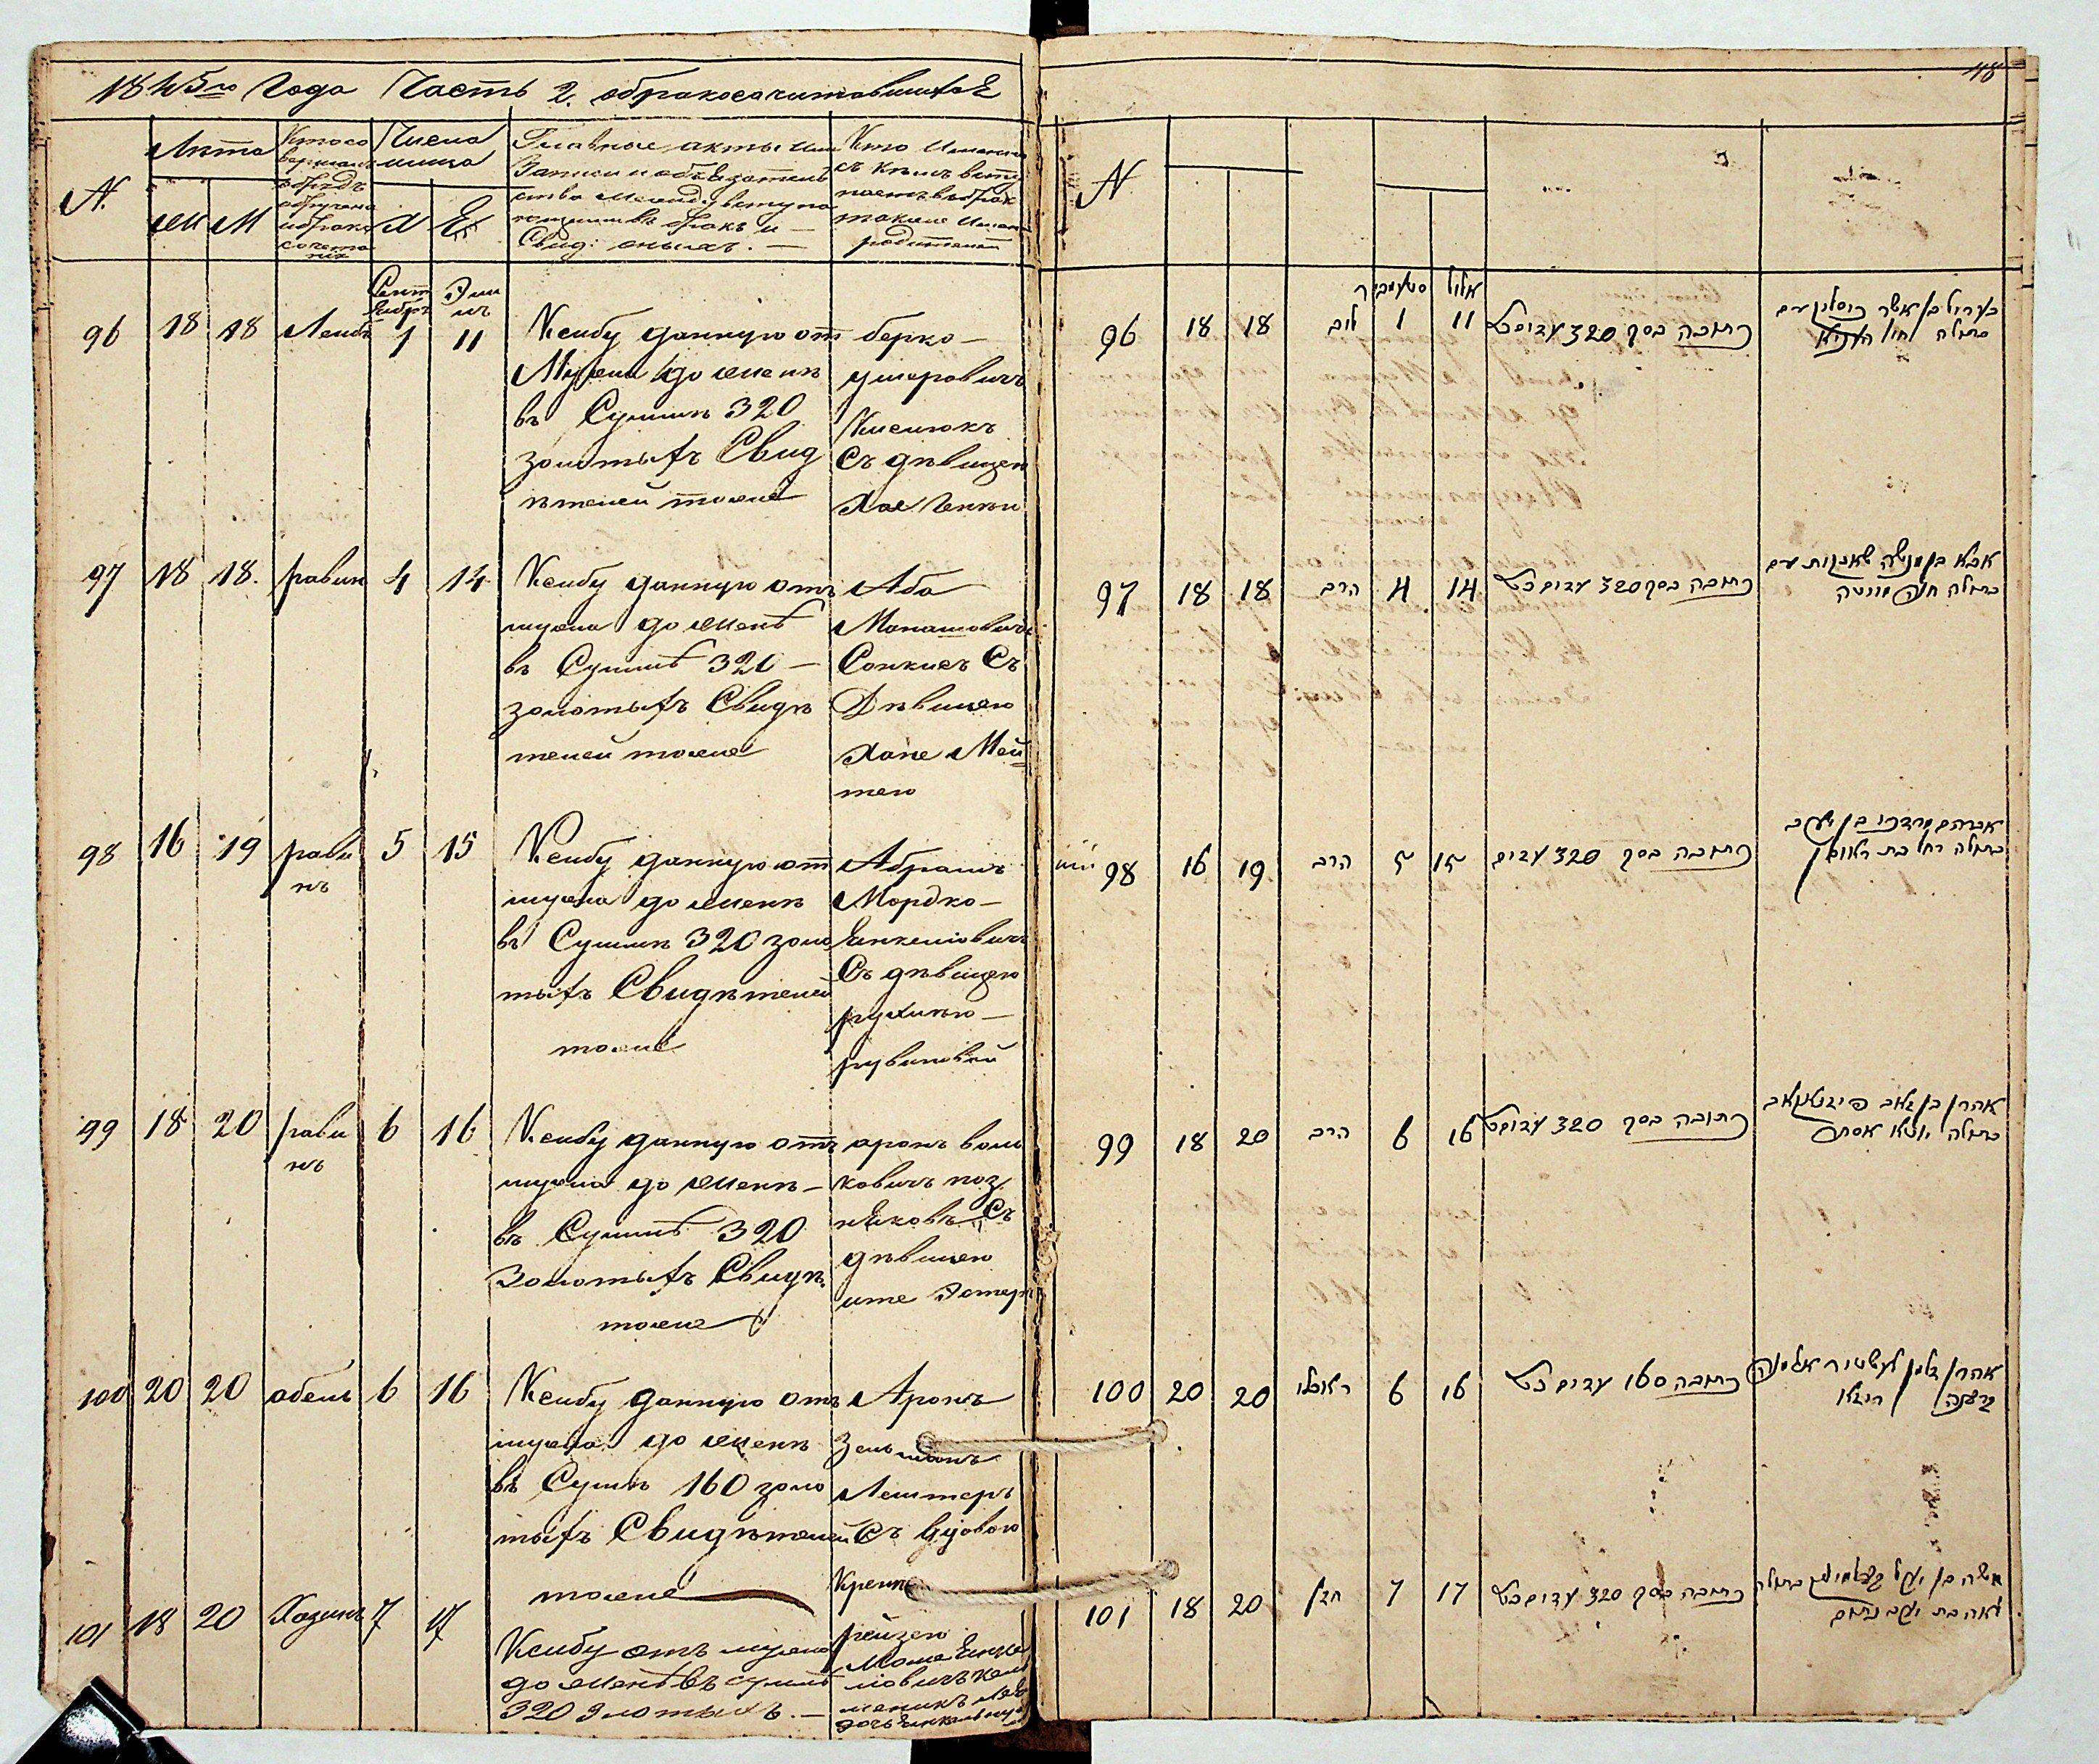 1845го Года Часть 2. обракосочитавшихся
N.
Лѣта
жен
М
Кто со
вершалъ
обрядъ
обручения
и брако
сочета
нія
Числа
мѣсяца
Х
Ев
Главные акты или
Записи и обязатель
ства между вступа
ющими въ бракъ и —
Свид: оныхъ. —
Кто Именно
съ кѣмъ всту
паетъ въ бракъ
также Имена
родителей
96 18 18 Лейбъ
Сент
ябръ
1
Элю
лъ
11
Ксибу данную от
Мужа до жены
въ Сумми 320
золотыхъ Свид
ѣтелей тоже
берко —
ушеровичъ
Киселюкъ
Съ дѣвицею
Хае
97 18 18. равин 4 14
Ксибу данную отъ
мужа до женѣ
въ Суммѣ 320 —
золотыхъ Свидѣ
телей тоже
Аба
Манашовичъ
Сонкисъ Съ
Дѣвицею
Хане Мей
тею
98 16 19 рави
нъ
5 15
Ксибу данную от
мужа до женѣ
въ Суммѣ 320 золо
тыхъ Свидѣтелей
тоже
Абрамъ
Мордко —
Янкеліовичъ
Съ дѣвицею
рухлию —
рувиновой
99 18 20 рави
нъ
6 16
Ксибу данную отъ
мужа до женѣ —
въ Суммѣ 320
Золотыхъ Свидѣ.
тоже
аронъ воль
ковичъ поз
няковъ Съ
дѣвицею
ите Эстер
100 20 20 абель 6 16
Ксибу данную отъ
мужа до женѣ
въ Сумѣ 160 золо
тыхъ Свидѣтелей
тоже
Аронъ
Зельманъ
Лештеръ
Съ Вдовою
Крейне
рейзею
101 18 20 Хазинъ 7 17
Ксибу отъ мужа
до женѣ въ суммѣ
320 Злотыхъ. —
Моше Янке
ліовичъ
118
N
96 18 18 לוב
סעמביר
1
אלול
11
כתובה בסך 320 עדים כצ
בערול בן אשר
בתולה
97 18 18 הרב 4 14
כתובה בסך 320 עדים כצ
אבא בן מנשה
בתולה חנה
98 16 19 הרב 5 15
כתובה בסך 320 עדים
אברהם מרדכי בן יעקב
בתולה רחל בת ראובן
99 18 20 הרב 6 16
כתובה בסך 320 עדים כצ
אהרן בן זאב
בתולה יוטא אסתר
100 20 20 6 16
כתובה 160 עדים כצ
אהרן זלמן לעשטיר אלמנה
קריינה רייזא
101 18 20 חזן 7 17
כתובה בסך 320 עדים כצ
משה בן יעקל בתולה
לאה בת יעקב נחום